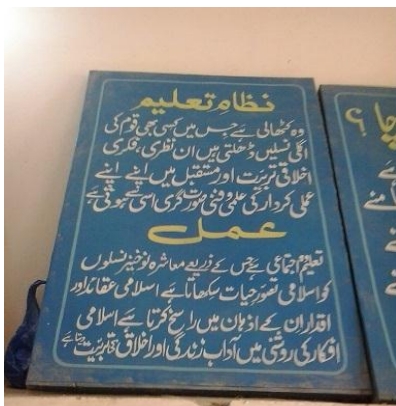 نظام تعلیم
وہ کٹھالی ہے جس میں کسی بھی قوم کی
اگلی نسلیں ڈھلتی ہیں ان نظری، فکری
اخلاقی تربیت اور مستقبل میں اپنے اپنے
عملی کردار کی علمی و فنی صورت گری اسی سے ہوتی ہے
عمل
تعلیم وہ اجتماعی ہے جس کے ذریعے معاشرہ نوخیز نسلوں
کو اسلامی تصور حیات سکھاتا ہے اسلامی عقائد اور
اقدار ان کے اذہان میں راسخ کرتا ہے اسلامی
افکار کی روشنی میں آداب زندگی اور اخلاق کی تربیت دیتا ہے
چا ؟